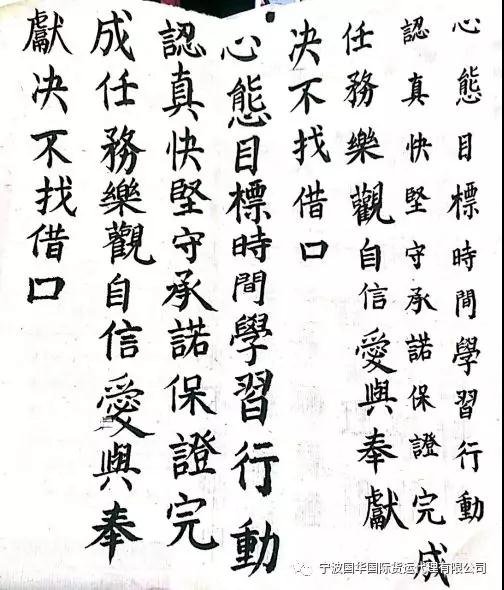 心態目標時間學習行動
認真快堅守承諾保證完成
任務樂觀自信愛與奉獻
决不找借口
心態目標時間學習行動
認真快堅守承諾保證完
成任務樂觀自信愛與奉
獻决不找借口
宁波国华国际货运代理有限公司